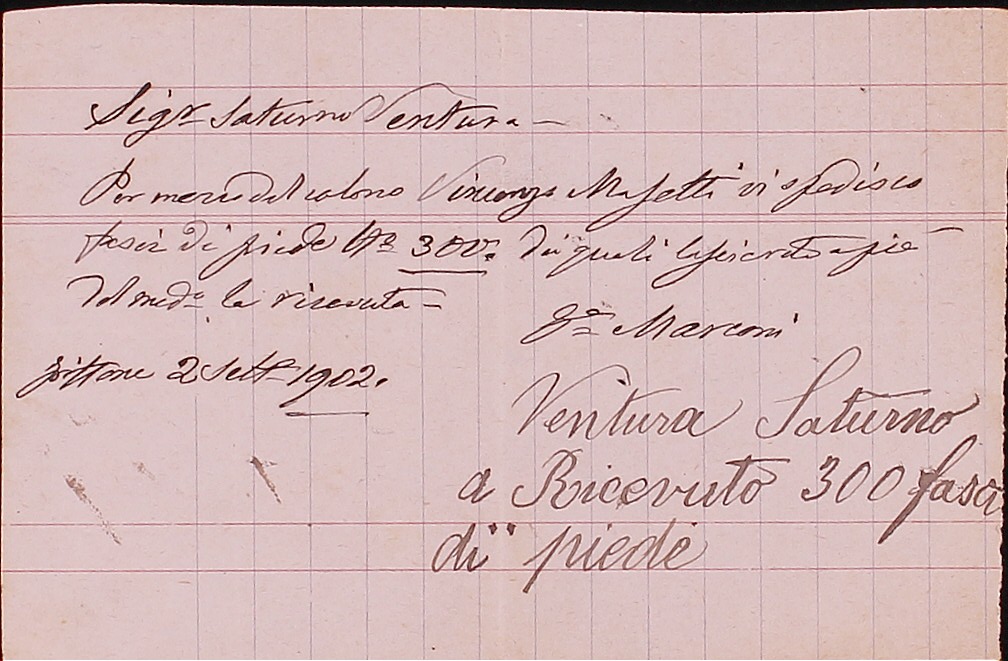 Sigr Saturno Ventura -
Per mezzo del colono Vincenzo Masetti vi spedisco
fasci di piede No 300: dei quali lascierete a piè
del medo la ricevuta =
Go Marconi
2 Sette 1902.
Ventura Saturno
a Ricevuto 300 fasci
di piede